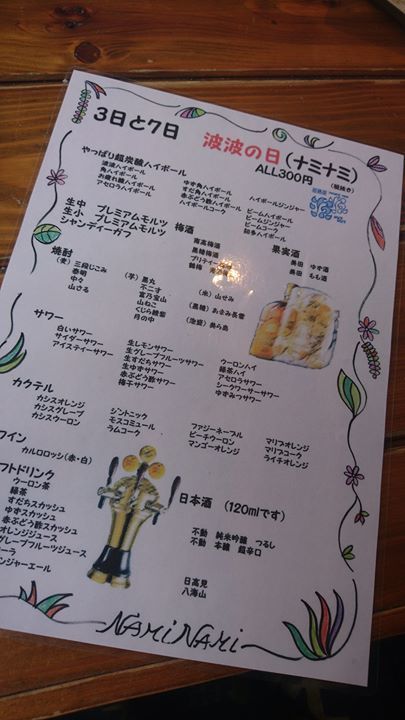 3日と7日
波波の日(ナミナミ)
ALL300円
(税抜き)
やっぱり超炭酸ハイボール
波波ハイボール
角ハイボール
お疲れ様ハイボール
アセロラハイボール
ゆず角ハイボール
すだ角ハイボール
赤ぶどう酢ハイボール
ハイボールコーク
ハイボールジンジャー
ビームハイボール
ビームジンジャー
ビームコーク
知多ハイボール
生中 プレミアムモルツ
生小 プレミアムモルツ
シャンディーガフ
梅酒
南高梅酒
黒糖梅酒
鶴梅
果実酒
奥田 ゆず酒
奥田 もも酒
焼酎
(麦) 三段じこみ
壱明
中々
山さる
(芋) 黒丸
不二才
富乃宝山
山ねこ
くじら綾紫
月の中
(米) 山せみ
(黒糖) あさみ長雲
(泡盛) 美ら島
サワー
白いサワー
サイダーサワー
アイスティーサワー
生レモンサワー
生グレープフルーツサワー
生すだちサワー
生ゆずサワー
赤ぶどう酢サワー
梅干サワー
ウーロンハイ
緑茶ハイ
アセロラサワー
シークワーサーサワー
ゆずみつサワー
カクテル
カシスオレンジ
カシスグレープ
カシスウーロン
ジントニック
モスコミュール
ラムコーク
ファジーネーブル
ピーチウーロン
マンゴーオレンジ
マリブオレンジ
マリブコーク
ライチオレンジ
ワイン
カルロロッシ(赤・白)
フトドリンク
ウーロン茶
緑茶
すだちスカッシュ
ゆずスカッシュ
赤ぶどう酢スカッシュ
オレンジジュース
グレープフルーツジュース
ーラ
ンジャーエール
日本酒 (120mlです)
不動 純米吟醸 つるし
不動 本醸 超辛口
日高見
八海山
NAMiNAMi